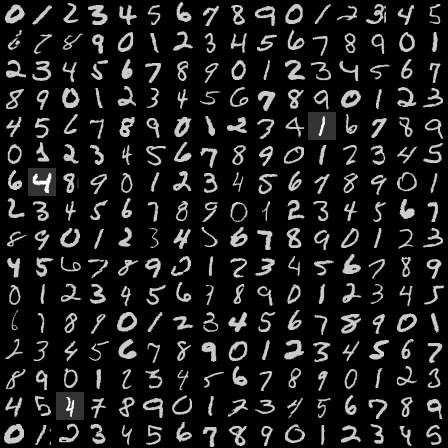 0 1 2 3 4 5 6 7 8 9 0 1 2 3 4 5
6 7 8 9 0 1 2 3 4 5 6 7 8 9 0 1
2 3 4 5 6 7 8 9 0 1 2 3 4 5 6 7
8 9 0 1 2 3 4 5 6 7 8 9 0 1 2 3
4 5 6 7 8 9 0 1 2 3 4 1 6 7 8 9
0 1 2 3 4 5 6 7 8 9 0 1 2 3 4 5
6 4 8 9 0 1 2 3 4 5 6 7 8 9 0 1
2 3 4 5 6 7 8 9 0 1 2 3 4 5 6 7
8 9 0 1 2 3 4 5 6 7 8 9 0 1 2 3
4 5 6 7 8 9 0 1 2 3 4 5 6 7 8 9
0 1 2 3 4 5 6 7 8 9 0 1 2 3 4 5
6 7 8 9 0 1 2 3 4 5 6 7 8 9 0 1
2 3 4 5 6 7 8 9 0 1 2 3 4 5 6 7
8 9 0 1 2 3 4 5 6 7 8 9 0 1 2 3
4 5 4 7 8 9 0 1 2 3 4 5 6 7 8 9
0 1 2 3 4 5 6 7 8 9 0 1 2 3 4 5